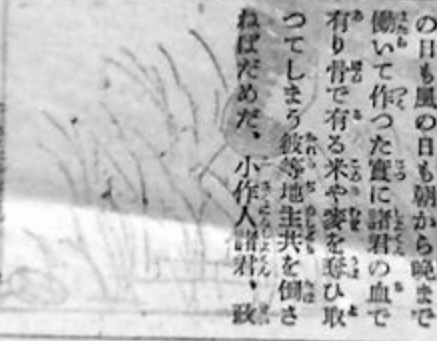 の日も風の日も朝から晩まで
働いて作つた實に諸君の血で
有り骨で有る米や麥を奪ひ取
つてしまう彼等地主共を倒さ
ねばだめだ、小作人諸君、政